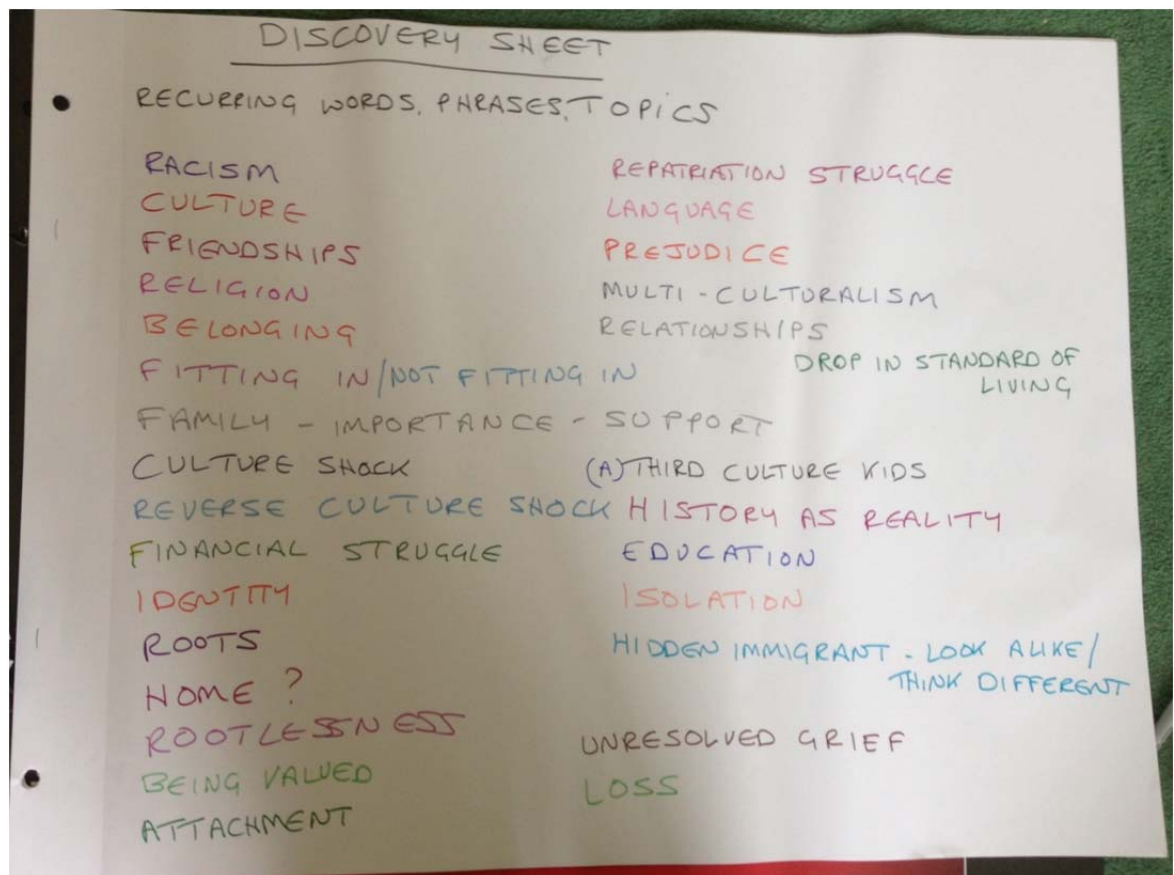 DISCOVERY SHEET
RECURRING WORDS, PHRASES, TOPICS
RACISM
CULTURE
FRIENDSHIPS
RELIGION
BELONGING
FITTING IN/NOT FITTING IN
FAMILY - IMPORTANCE - SUPPORT
CULTURE SHOCK
REVERSE CULTURE SHOCK
FINANCIAL STRUGGLE
IDENTITY
ROOTS
HOME ?
ROOTLESSNESS
BEING VALUED
ATTACHMENT
REPATRIATION STRUGGLE
LANGUAGE
PREJUDICE
MULTI-CULTURALISM
RELATIONSHIPS
DROP IN STANDARD OF
LIVING
(A) THIRD CULTURE KIDS
HISTORY AS REALITY
EDUCATION
ISOLATION
HIDDEN IMMIGRANT - LOOK ALIKE/
THINK DIFFERENT
UNRESOLVED GRIEF
LOSS